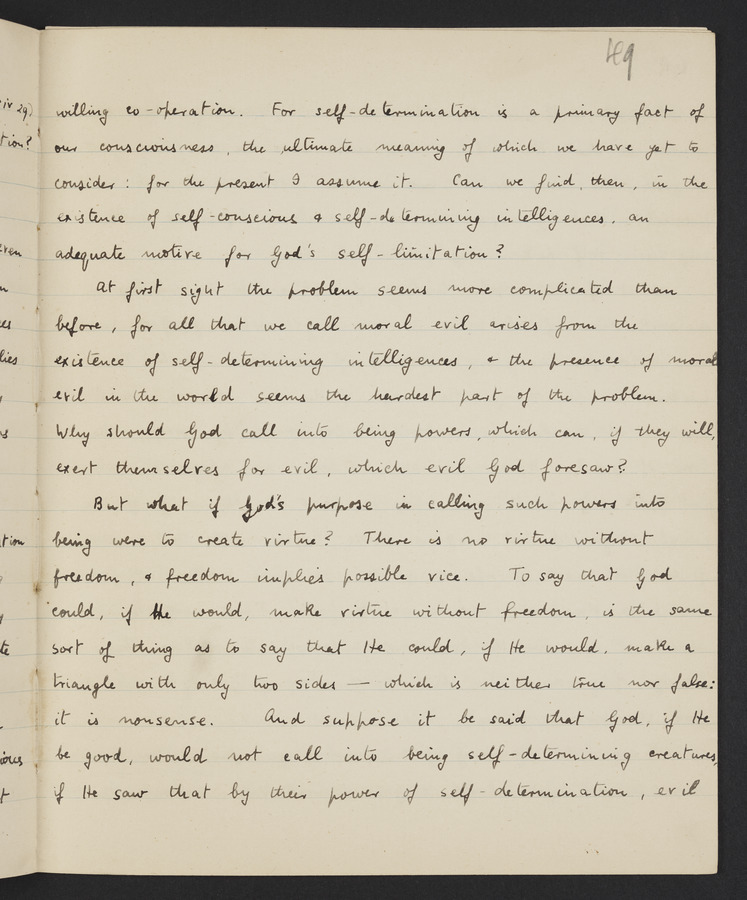 49
willing co-operation. For self-determination is a primary fact of
our consciousness, the ultimate meaning of which we have yet to
consider: for the present I assume it. Can we find, then, in the
existence of self-conscious & self-determining intelligences, an
adequate motive for God's self-limitation?
At first sight the problem seems more complicated than
before, for all that we call moral evil arises from the
existence of self-determining intelligences, & the presence of moral
evil in the world seems the hardest part of the problem.
Why should God call into being powers, which can, if they will,
exert themselves for evil, which evil God foresaw?
But what if God's purpose in calling such powers into
being were to create virtue? There is no virtue without
freedom, & freedom implies possible vice. To say that God
could, if He would, make virtue without freedom, is the same
sort of thing as to say that He could, if He would, make a
triangle with only two sides — which is neither true nor false:
it is nonsense. And suppose it be said that God, if He
be good, would not call into being self-determining creatures,
if He saw that by their power of self-determination, evil